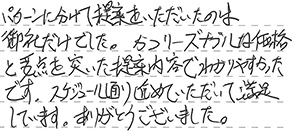 パターンに分けて提案をいただいたのは
御社だけでした。リーズナブルな価格
と要点を突いた提案内容でわかりやすかった
です。スケジュール通り進めていただいて満足
しています。ありがとうございました。